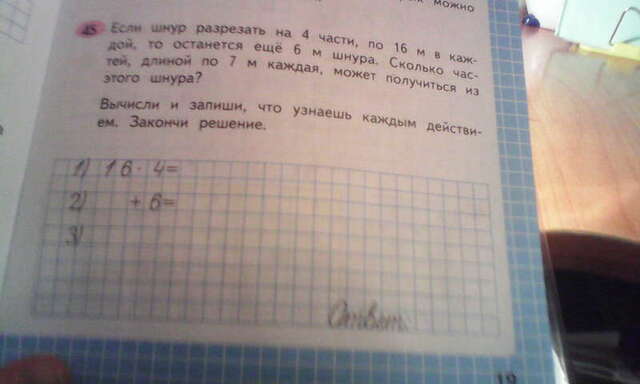 можно
45 Если шнур разрезать на 4 части, по 16 м в каж-
дой, то останется ещё 6 м шнура. Сколько час-
тей, длиной по 7 м каждая, может получиться из
этого шнура?
Вычисли и запиши, что узнаешь каждым действи-
ем. Закончи решение.
1) 16· 4=
2) + 6=
3)
Ответ: